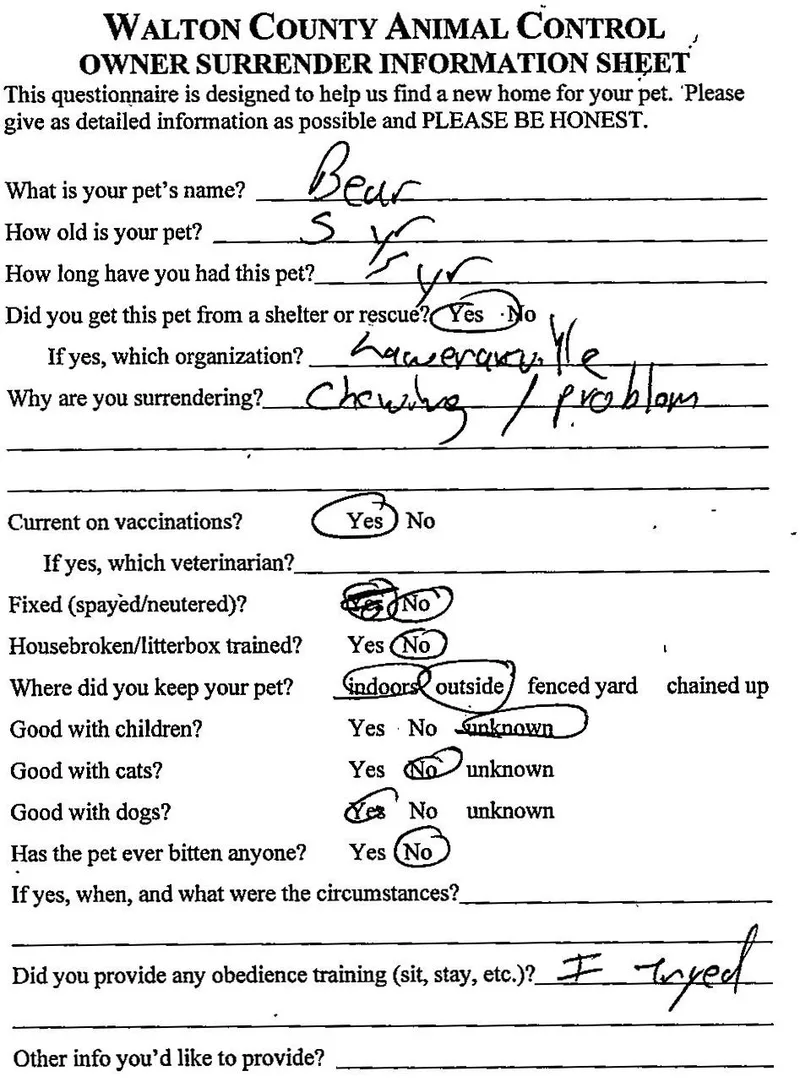 WALTON COUNTY ANIMAL CONTROL
OWNER SURRENDER INFORMATION SHEET
This questionnaire is designed to help us find a new home for your pet. Please
give as detailed information as possible and PLEASE BE HONEST.
What is your pet's name? Bear
How old is your pet? 5 yr
How long have you had this pet? 5 yr
Did you get this pet from a shelter or rescue? Yes No
If yes, which organization?
Why are you surrendering? Chewing / problem
Current on vaccinations? Yes No
If yes, which veterinarian?
Fixed (spayed/neutered)? Yes No
Housebroken/litterbox trained? Yes No
Where did you keep your pet? indoors outside fenced yard chained up
Good with children? Yes No unknown
Good with cats? Yes No unknown
Good with dogs? Yes No unknown
Has the pet ever bitten anyone? Yes No
If yes, when, and what were the circumstances?
Did you provide any obedience training (sit, stay, etc.)? I tryed
Other info you'd like to provide?